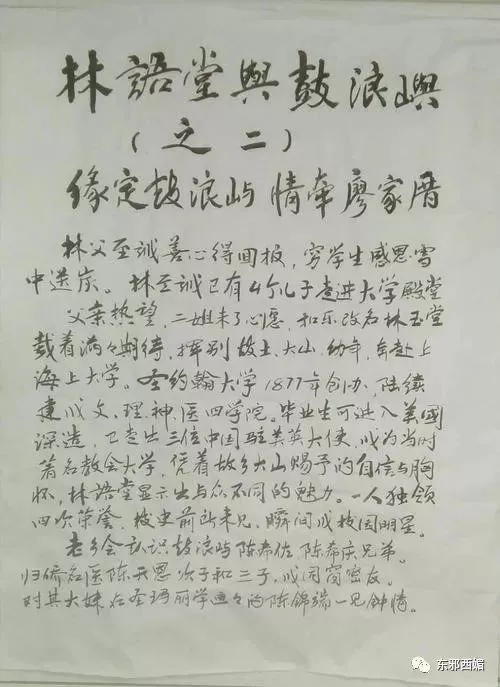 林語堂與鼓浪嶼
(之二)
缘定鼓浪屿 情牵廖家厝
林父至诚善心得回报，穷学生感恩雪
中送炭。林至诚已有4个儿子走进大学殿堂
父亲热望，二姐未了心愿，和乐改名林玉堂
载着满々期待，挥别故土、大山、幼年，奔赴上
海上大学。圣约翰大学1877年创办，陆续
建成文、理、神、医四学院。毕业生可进入美國
深造，已走出三位中国駐美英大使，成为当时
著名教会大学，凭着故乡大山赐予的自信与胸
怀，林語堂显示出与众不同的魅力。一人独领
四次荣誉，校史前所未见，瞬间成校园明星。
老乡会认识鼓浪屿陈希佐、陈希庆兄弟。
归侨名医陈天恩次子和三子，成同窗密友。
对其大妹在圣玛丽学画々的陈錦端一见钟情。
东邪西媚